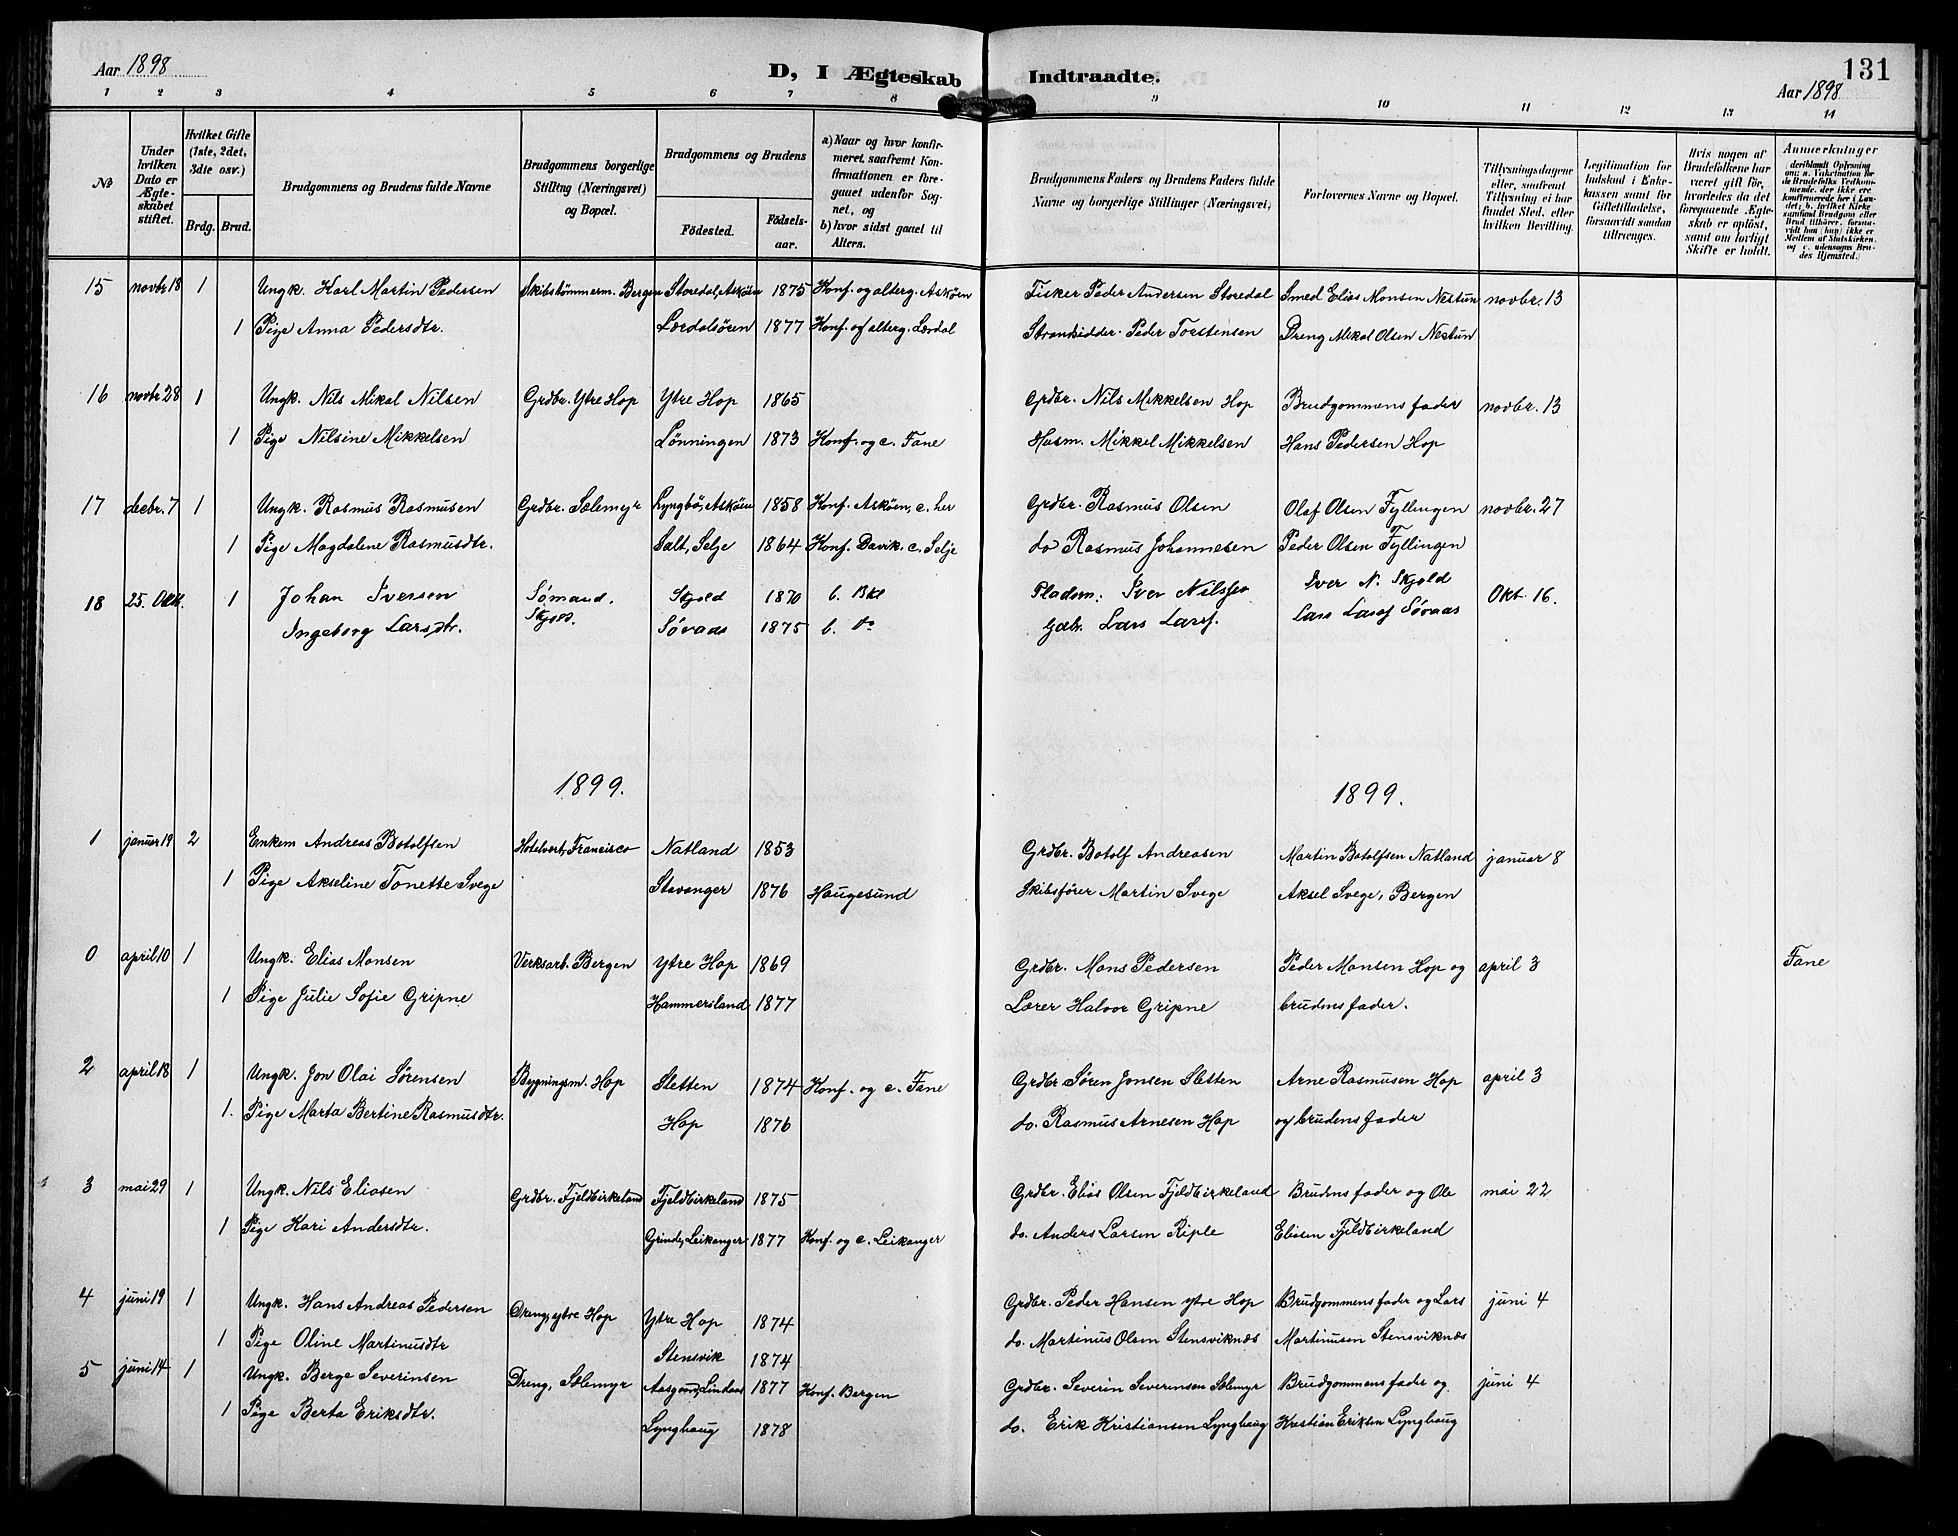 Aar 1898
D, I Ægteskab Indtraadte.
131
Aar 1898
1 2 3 4 5 6 7 8 9 10 11 12 13 14
No
Under hvilken Dato er Ægteskabet stiftet.
Hvilket Gifte (1ste, 2det, 3die osv.)
Brdg. Brud.
Brudgommens og Brudens fulde Navne
Brudgommens borgerlige Stilling (Næringsvei) og Bopæl.
Brudgommens og Brudens
Fødested.
Fødselsaar.
a) Naar og hvor konfirmeret, saafremt Konfirmationen er foregaaet udenfor Sognet, og
b) hvor sidst gaaet til Alters.
Brudgommens Faders og Brudens Faders fulde Navne og borgerlige Stillinger (Næringsvei)
Forlovernes Navne og Bopæl.
Tillysningsdagene eller, saafremt Tillysning ei har fundet Sted, efter hvilken Bevilling.
Legitimation for Indskud i Enkekassen samt for Giftetilladelse, forsaavidt saadan tiltrænges.
Hvis nogen af Brudefolkene har været gift før, hvorledes da det foregaaende Ægteskab er opløst, samt om lovligt Skifte er holdt.
Anmærkninger
deriblandt Oplysning om: a. Vakcination for de Brudefolks Vedkommende, der ikke ere konfirmerede her i Landet; b. hvilket Kirkesamfund Brudgom eller Brud tilhører, forsaavidt han (hun) ikke er Medlem af Statskirken, og c. udensogns Brudes Hjemsted.)
15 novbr 18 1 Ungk. Karl Martin Pedersen Skibstømmerm. Bergen Storedal, Askøen 1875 Konf. og alterg. Askøen Fisker Peder Andersen Storedal Smed Elias Monsen Nestun novbr. 13
1 Pige Anna Pedersdtr. Lærdalsören 1877 Konf. og alterg. Lærdal Strandsidder Peder Torstensen Dreng Mikal Olsen Nestun
16 novbr 28 1 Ungk. Nils Mikal Nilsen Grdbr. Ytre Hop Ytre Hop 1865 Grdbr. Nils Mikkelsen Hop Brudgommens fader novbr. 13
1 Pige Nilsine Mikkelsen Lønningen 1873 Konf. og c. Fane Husm. Mikkel Mikkelsen Hans Pedersen Hop
17 decbr. 7 1 Ungk. Rasmus Rasmusen Grdbr. Sælemyr Lyngbö, Askøen 1858 Konf. Askøen, c. her Grdbr. Rasmus Olsen Olaf Olsen Fyllingen novbr. 27
1 Pige Magdalene Rasmusdtr. Salt, Selje 1864 Konf. Davik. c. Selje do Rasmus Johannesen Peder Olsen Fyllingen
18 25. Okt. 1 Johan Iversen Sømand. Skjold 1870 b. Bkl Pladsm. Iver Nilssen Iver N. Skjold Okt. 16.
Ingeborg Larsdtr. Skjold. Søvaas 1875 b. do Gdbr. Lars Larss. Lars Larss Søvaas
1899. 1899.
1 januar 19 2 Enkem Andreas Botolfsen Hotelvert, Francisco Natland 1853 Grdbr. Botolf Andreasen Martin Botolfsen Natland januar 8
1 Pige Akseline Tonette Svege Stavanger 1876 Haugesund Skibsfører Martin Svege Aksel Svege, Bergen
0 april 10 1 Ungk. Elias Monsen Verksarb. Bergen Ytre Hop 1869 Grdbr. Mons Pedersen Peder Monsen Hop og april 3 Fane
1 Pige Julie Sofie Gripne Hammersland 1877 Lærer Halvor Gripne brudens fader.
2 april 18 1 Ungk. Jon Olai Sørensen Bygningsm. Hop Sletten 1874 Konf. og c. Fane Grdbr Søren Jonsen Sletten Arne Rasmusen Hop april 3
1. Pige Marta Bertine Rasmusdtr. Hop 1876 do. Rasmus Arnesen Hop og brudens fader
3 mai 29 1 Ungk. Nils Eliasen Grdbr. Fjeldbirkeland Fjeldbirkeland 1875 Grdbr. Elias Olsen Fjeldbirkeland Brudens fader og Ole mai 22
1 Pige Kari Andersdtr. Grinde, Leikanger 1877 Konf. og c. Leikanger do. Anders Larsen Riple Eliasen Fjeldbirkeland
4 juni 19 1 Ungk. Hans Andreas Pedersen Dreng, ytre Hop Ytre Hop 1874 Grdbr. Peder Hansen ytre Hop Brudgommens fader og Lars juni 4
1 Pige Oline Martinusdtr Stensvik 1874 do. Martinus Olsen Stensviknæs Martinusen Stensviknæs
5 juni 14 1 Ungk. Berge Severinsen Dreng, Sælemyr Aasgaard, Lindaas 1877 Konf. Bergen Grdbr. Severin Severinsen Sælemyr Brudgommens fader og juni 4
1 Pige Berta Eriksdtr. Lynghaug 1878 do. Erik Kristiansen Lynghaug Kristian Eriksen Lynghaug